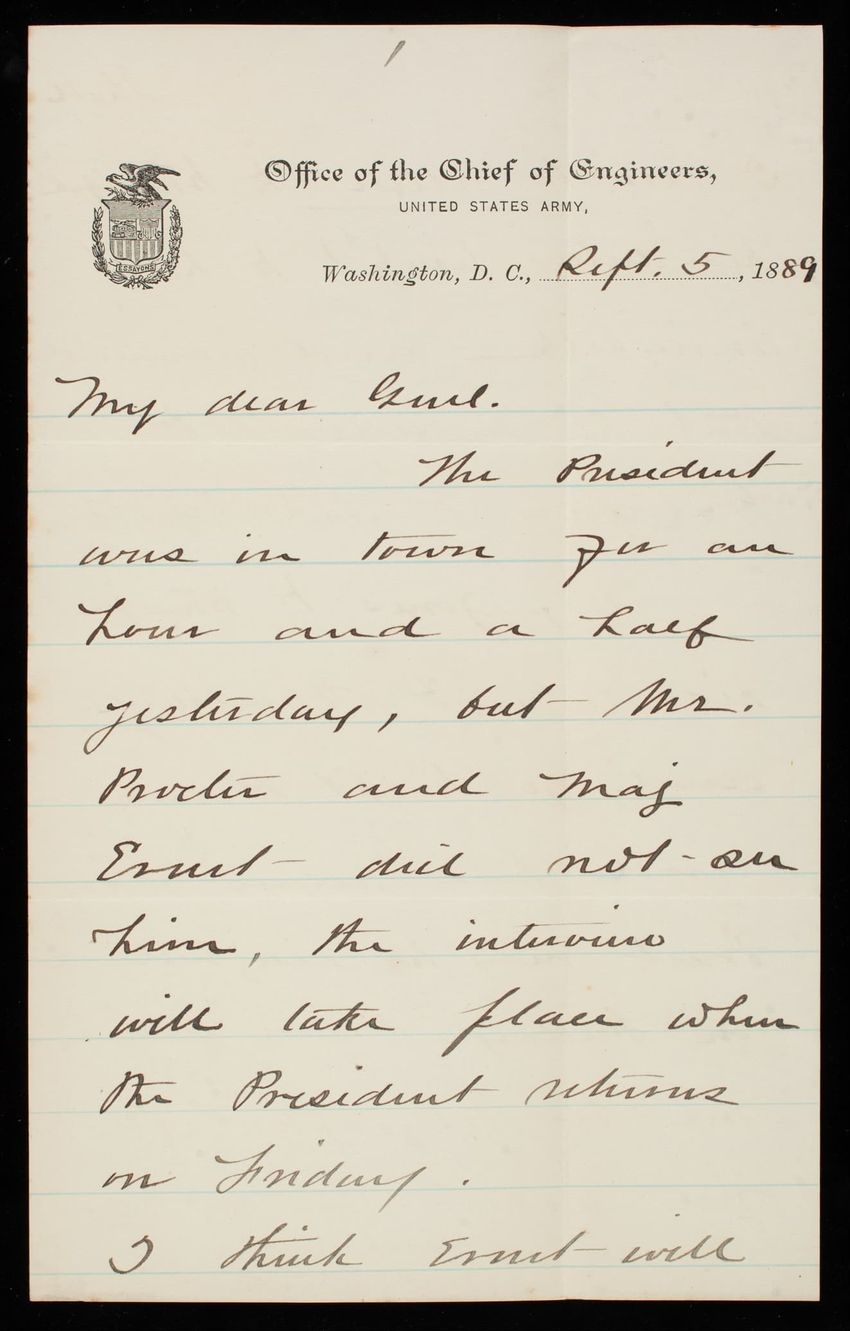 Office of the Chief of Engineers,
UNITED STATES ARMY,
Washington, D. C., Sept. 5, 1889
ESSAYONS
My dear Genl.
The President
was in town for an
hour and a half
yesterday, but Mr.
Procter and Maj
Ernst did not see
him, the interview
will take place when
the President returns
on Friday.
I think Ernst will